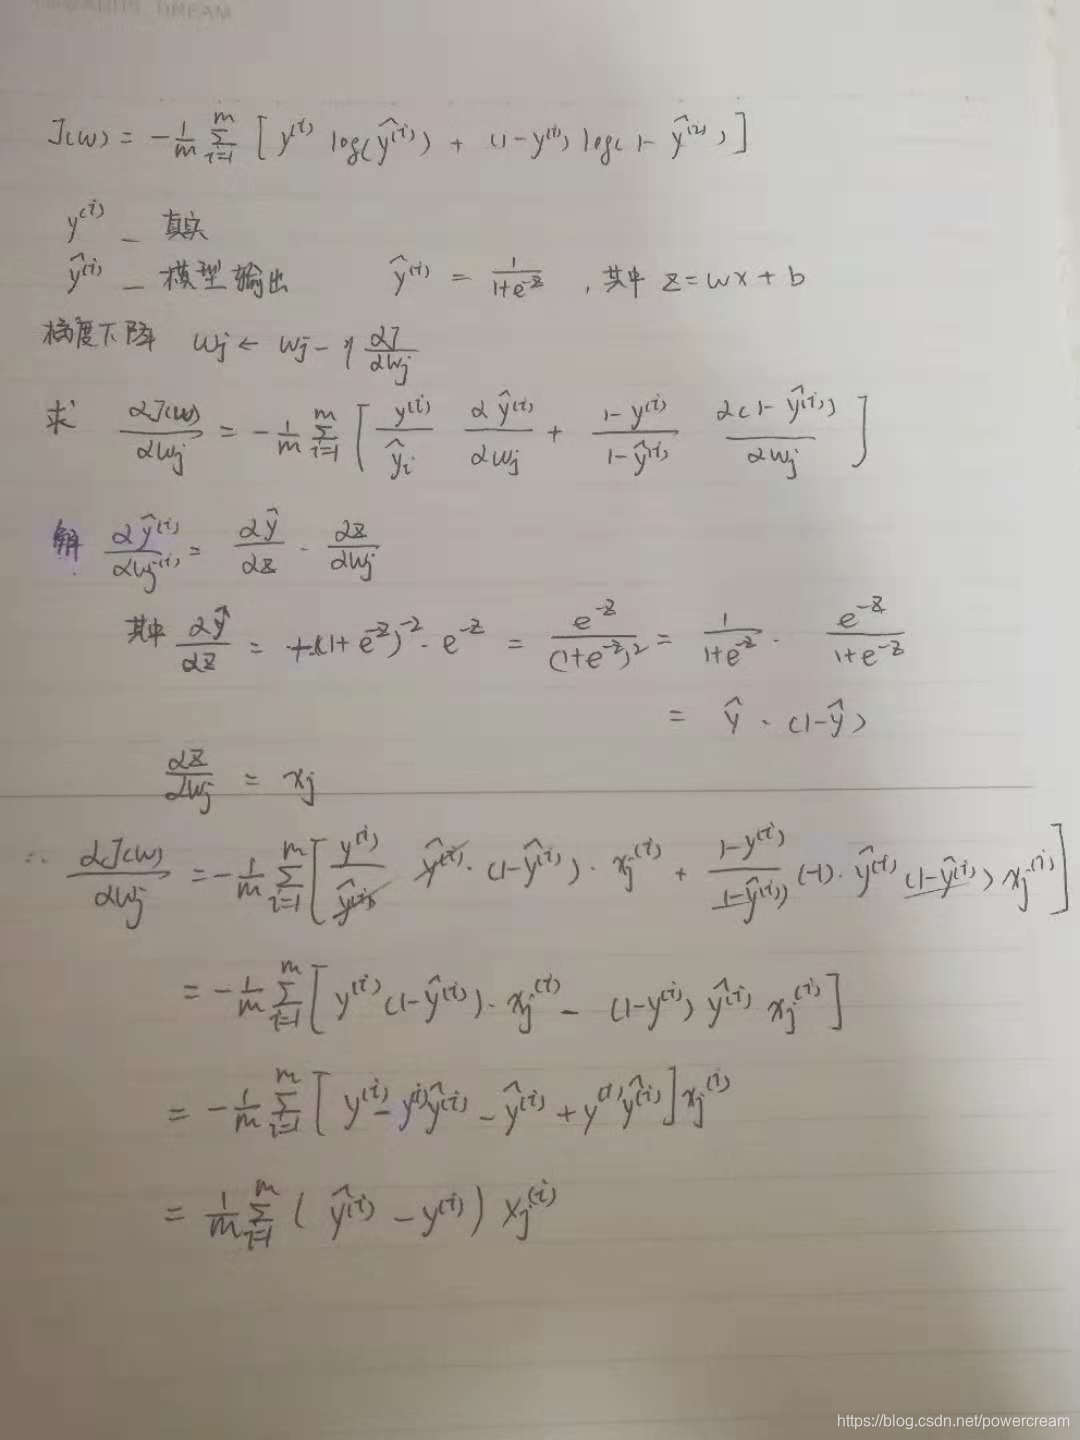 J(w) = -1/m Σ_{i=1}^{m} [ y^(i) log(ŷ^(i)) + (1-y^(i)) log(1-ŷ^(i)) ]
y^(i) — 真实
ŷ^(i) — 模型输出 ŷ^(i) = 1/(1+e^-z) , 其中 z=wx+b
梯度下降 wj ← wj - η ∂J/∂wj
求 ∂J(w)/∂wj = -1/m Σ_{i=1}^{m} [ y^(i)/ŷi ∂ŷ^(i)/∂wj + (1-y^(i))/(1-ŷ^(i)) ∂(1-ŷ^(i))/∂wj ]
解 ∂ŷ^(i)/∂wj^(i) = ∂ŷ/∂z · ∂z/∂wj
其中 ∂ŷ/∂z = +(1+e^-z)^-2 · e^-z = e^-z/(1+e^-z)^2 = 1/(1+e^-z) · e^-z/(1+e^-z)
= ŷ · (1-ŷ)
∂z/∂wj = xj
∴ ∂J(w)/∂wj = -1/m Σ_{i=1}^{m} [ y^(i)/ŷ^(i) ŷ^(i) · (1-ŷ^(i)) · xj^(i) + (1-y^(i))/(1-ŷ^(i)) (-1) · ŷ^(i) (1-ŷ^(i)) xj^(i) ]
= -1/m Σ_{i=1}^{m} [ y^(i) (1-ŷ^(i)) · xj^(i) - (1-y^(i)) ŷ^(i) xj^(i) ]
= -1/m Σ_{i=1}^{m} [ y^(i) - y^(i)ŷ^(i) - ŷ^(i) + y^(i)ŷ^(i) ] xj^(i)
= 1/m Σ_{i=1}^{m} ( ŷ^(i) - y^(i) ) xj^(i)
https://blog.csdn.net/powercream